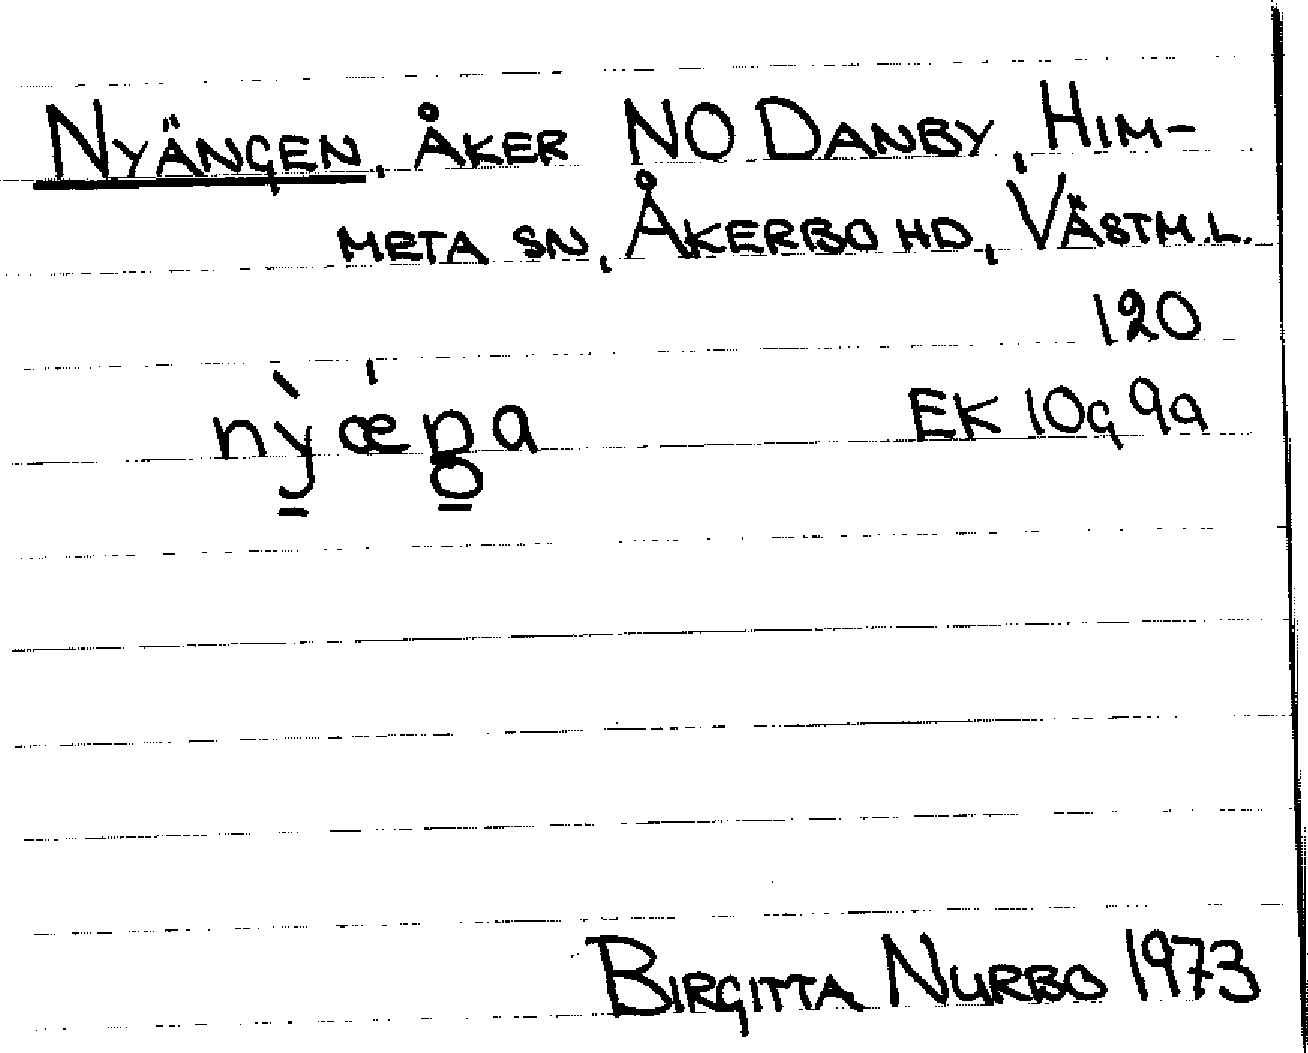 NYÄNGEN, ÅKER NO DANBY, HIM-
META SN, ÅKERBO HD, VÄSTM.L.
120
EK 10G 9a
BIRGITTA NURBO 1973